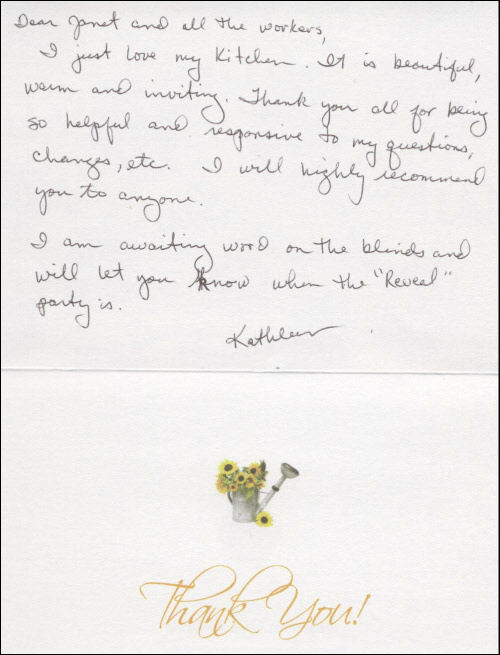 Dear Janet and all the workers,
I just love my Kitchen. It is beautiful,
warm and inviting. Thank you all for being
so helpful and responsive to my questions,
changes, etc. I will highly recommend
you to anyone.
I am awaiting word on the blinds and
will let you know when the "Reveal"
party is.
Kathleen
Thank You!